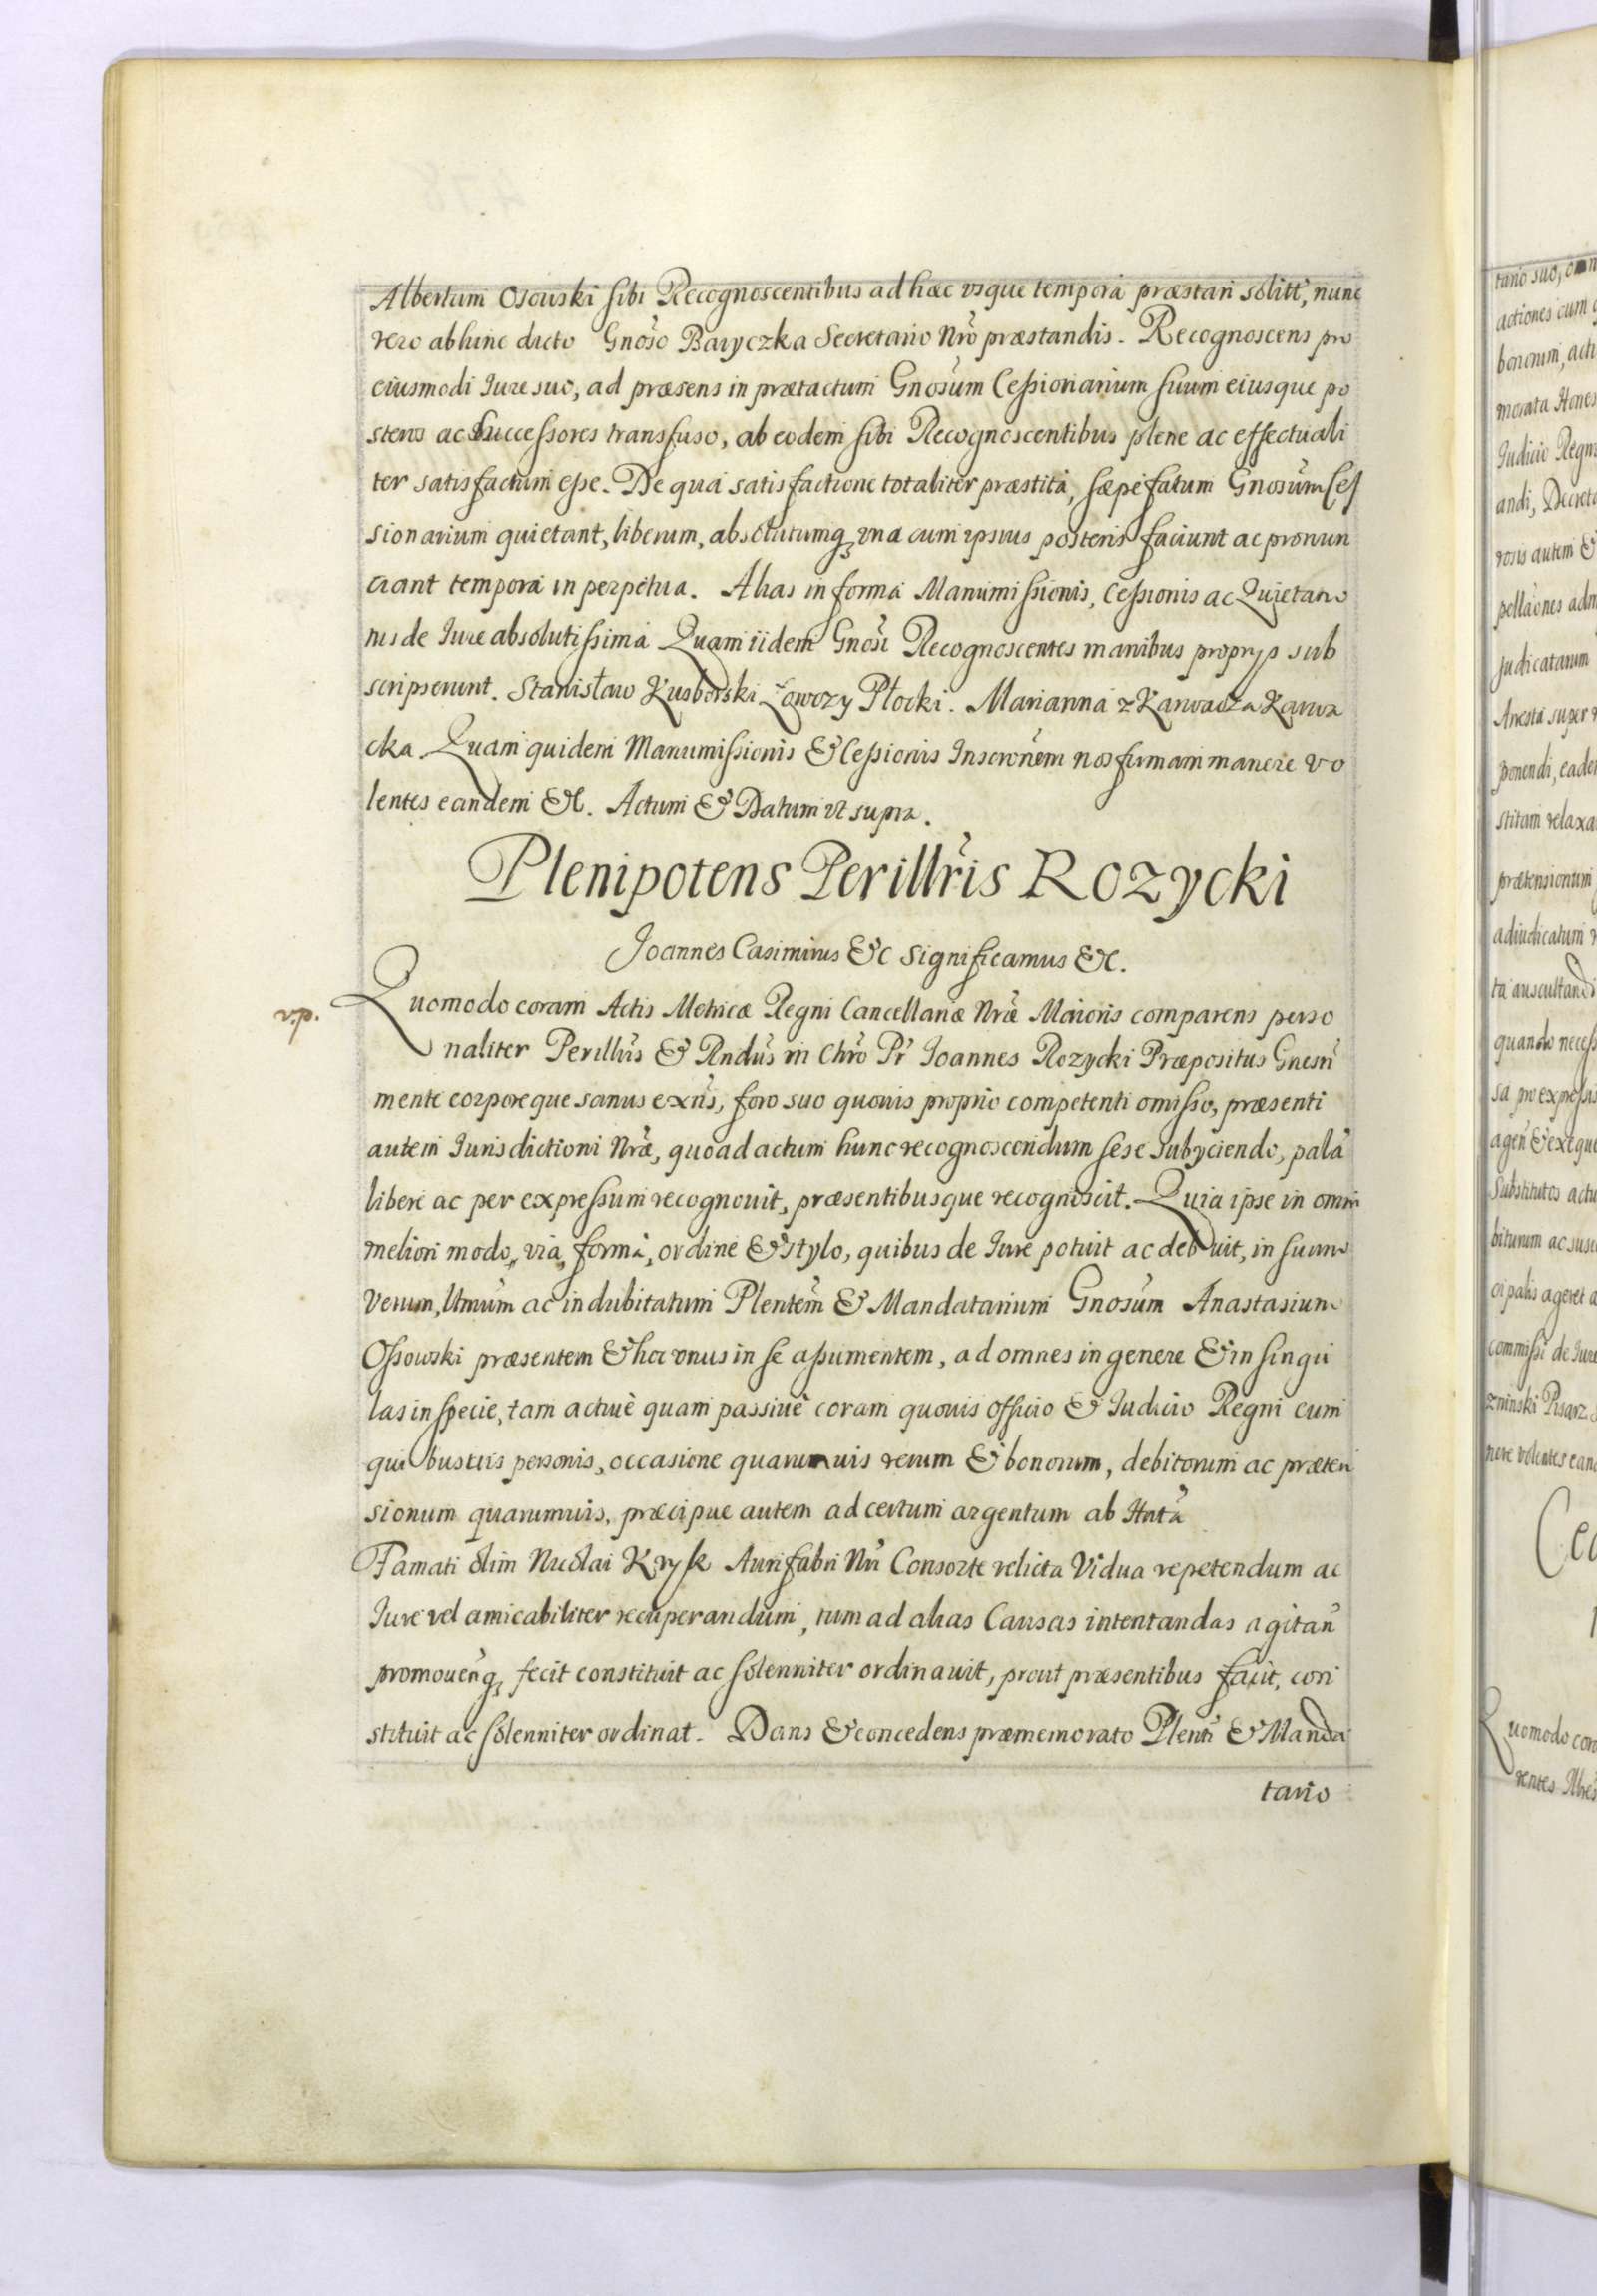 Albertum Osowski sibi Recognoscentibus ad hæc usque tempora præstari solitt, nunc
vero abhinc dicto Gnoso Baryczka Secretario Nro præstandis. Recognoscens pro
eiusmodi Iure suo, ad præsens in prætactum Gnosum Cessionarium suum eiusque po
steros ac Successores transfuso, ab eodem sibi Recognoscentibus plene ac effectuali
ter satisfactum esse. De qua satisfactione totaliter præstita, sæpefatum Gnosum Ces
sionarium quietant, liberum, absolutumq, una cum ipsius posteris faciunt ac pronun
ciant tempora in perpetua. Alias in forma Manumissionis, Cessionis ac Quietatio
nis de Iure absolutissima Quam iidem Gnosi Recognoscentes manibus proprys sub
scripserunt. Stanisław Kusborski Łowczy Płocki. Marianna z Karwacza Karwa
cka. Quam quidem Manumissionis & Cessionis Inscronem nos firmam manere vo
lentes eandem &c. Actum & Datum ut supra.
Plenipotens Perillris Rozycki
Joannes Casimirus &c Significamus &c.
v.p.
Quomodo coram Actis Metricæ Regni Cancellariæ Nræ Maioris comparens perso
naliter Perillris & Rndus in Chro Pr Joannes Rozycki Præpositus Gnesn
mente corporeque sanus exns, foro suo quovis proprio competenti omisso, præsenti
autem Iurisdictioni Nræ, quoad actum hunc recognoscendum sese subyciendo, pala
libere ac per expressum recognovit, præsentibusque recognoscit. Quia ipse in omni
meliori modo, via, forma, ordine & stylo, quibus de Iure potuit ac debuit, in suum
verum, ltmum ac indubitatum Plentem & Mandatarium Gnosum Anastasium
Ossowski præsentem & hoc onus in se assumentem, ad omnes in genere & in singu
las in specie, tam active quam passive coram quovis officio & Iudicio Regni cum
quibusvis personis, occasione quarumvis rerum & bonorum, debitorum ac præten
sionum quarumvis, præcipue autem ad certum argentum ab Hnta
Famati olim Nicolai Krysk Aurifabri Nri Consorte relicta Vidua repetendum ac
Iure vel amicabiliter recuperandum, tum ad alias Causas intentandas agitan
promovenq, fecit constituit ac solenniter ordinavit, prout præsentibus facit, con
stituit ac solenniter ordinat. Dans & concedens præmemorato Plenti & Manda
tario
tario suo, omn
actiones cum
bonorum, acti
morata Hones
Iudicio Regni
andi, Decreta
rosis autem &
pellaones adm
judicatarum
Aresta super
ponendi, eade
stitam relaxa
prætensionum
adiudicatum
ta auscultandi
quando necess
sa pro expressis
agen & exeque
Substitutos actu
biturum ac susc
cipalis ageret a
commissi de Iure
zninski Pisarz
nere volentes eand
Ce
Quomodo cora
rentes